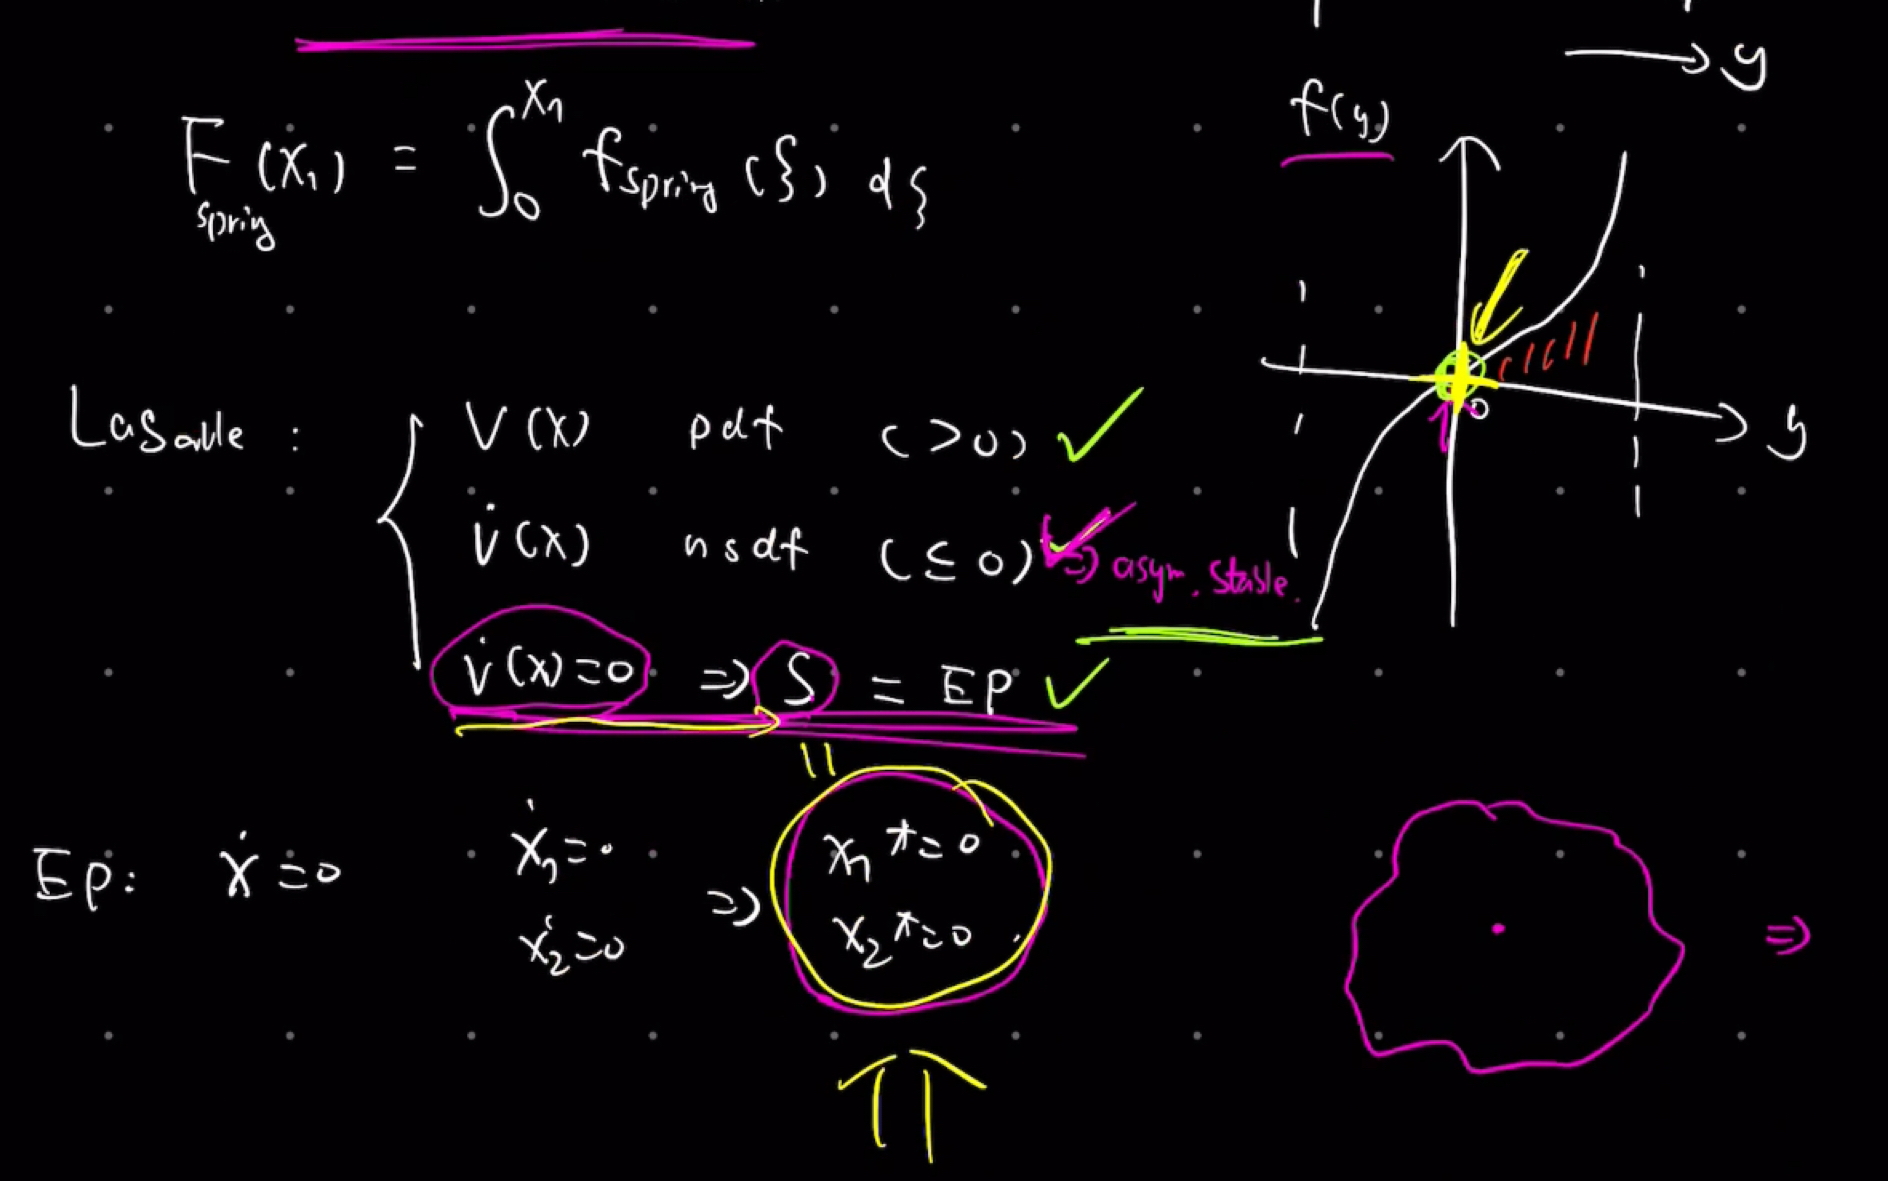 → y
f(y)
F_spring (x₁) = ∫₀^x₁ f_spring (ξ) dξ
0
y
LaSalle : V(x) pdf (>0) ✓
V̇(x) nsdf (≤0) ✓ ⇒ asym. stable.
V̇(x)=0 ⇒ S = EP ✓
||
Ep: ẋ=0 ẋ₁=0 ⇒ x₁*=0
ẋ₂=0 x₂*=0
⇒